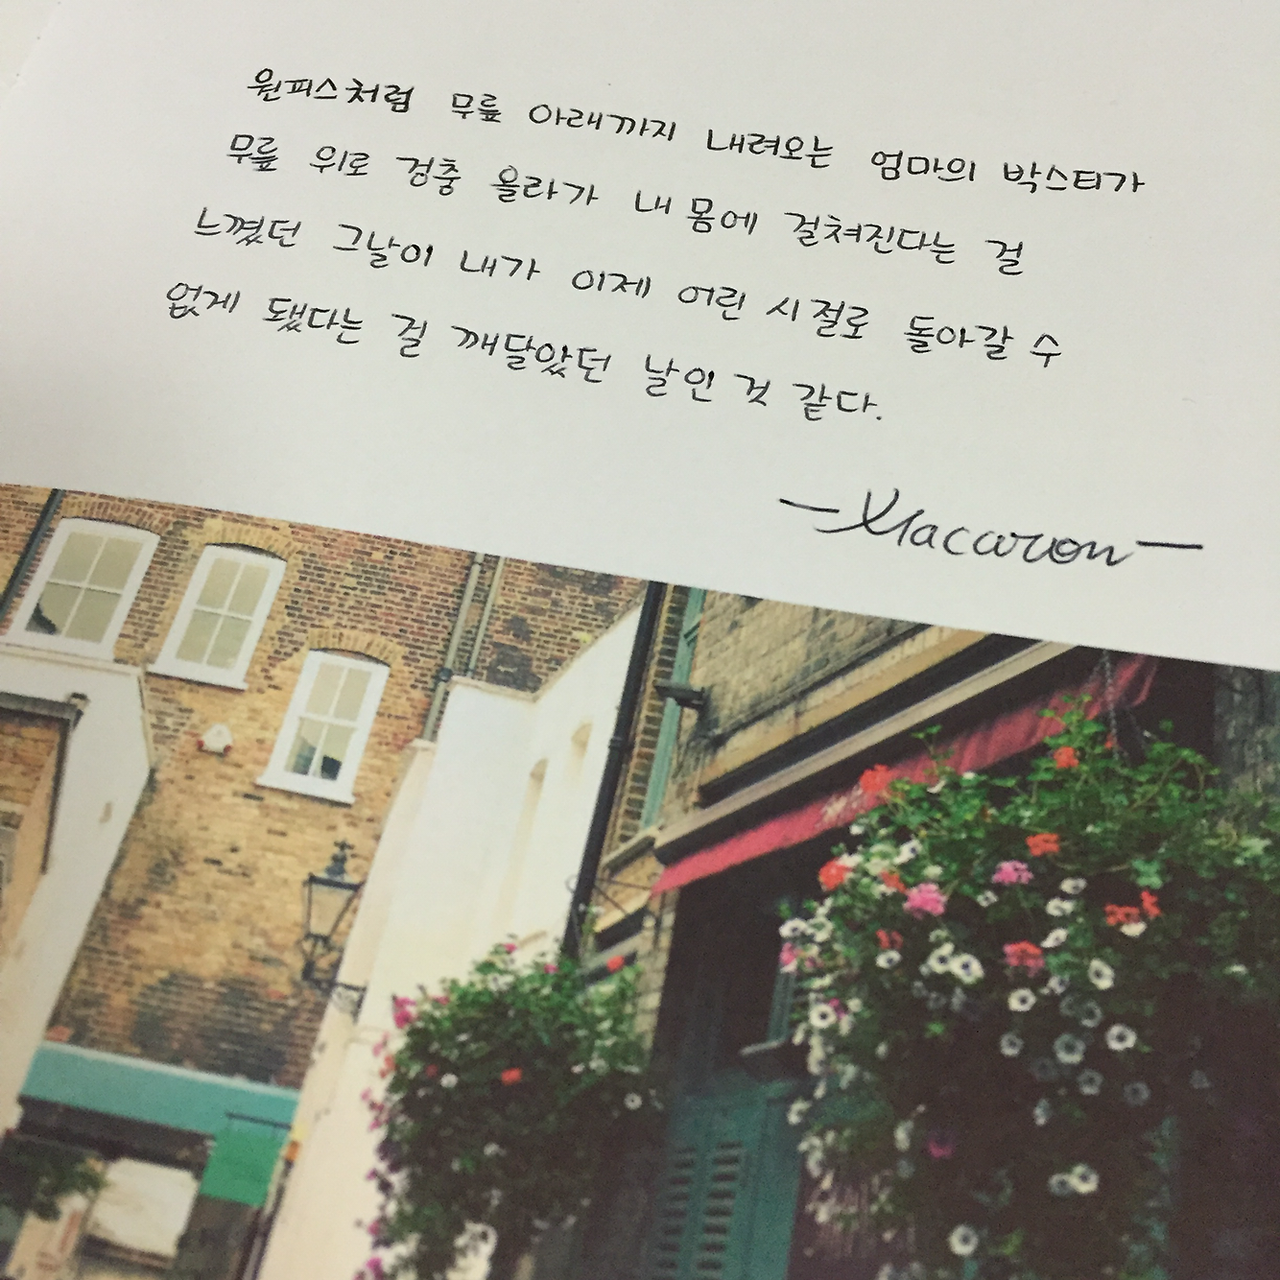 원피스처럼 무릎 아래까지 내려오는 엄마의 박스티가
무릎 위로 겅충 올라가 내 몸에 걸쳐진다는 걸
느꼈던 그날이 내가 이제 어린 시절로 돌아갈 수
없게 됐다는 걸 깨달았던 날인 것 같다.
—Macaron—